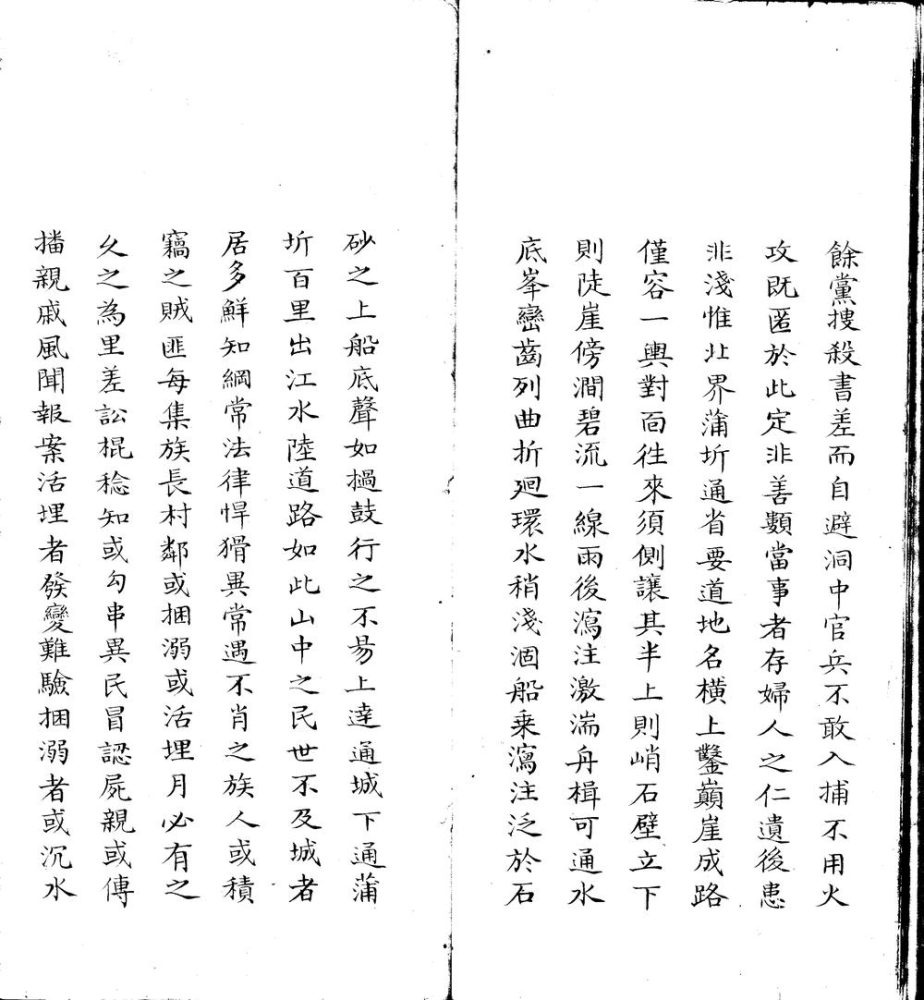 餘黨搜殺書差而自避洞中官兵不敢入捕不用火
攻既匿於此定非善類當事者存婦人之仁遺後患
非淺惟北界蒲圻通省要道地名橫上鑿巔崖成路
僅容一輿對面往來須側讓其半上則峭石壁立下
則陡崖傍澗碧流一線雨後瀉注激湍舟楫可通水
底峯巒齒列曲折廻環水稍淺涸船乗瀉注泛於石
砂之上船底聲如撾鼓行之不易上達通城下通蒲
圻百里出江水陸道路如此山中之民世不及城者
居多鮮知綱常法律悍猾異常遇不肖之族人或積
竊之賊匪每集族長村鄰或捆溺或活埋月必有之
久之為里差訟棍稔知或勾串異民冒認屍親或傳
播親戚風聞報案活埋者發變難驗捆溺者或沉水